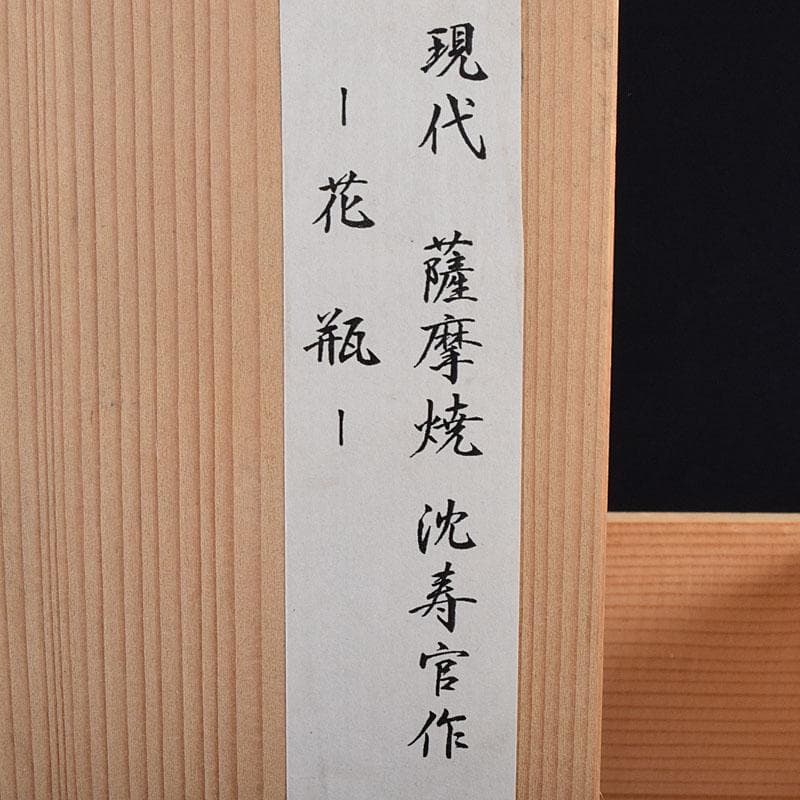 現代 薩摩焼 沈寿官作
ー花瓶ー